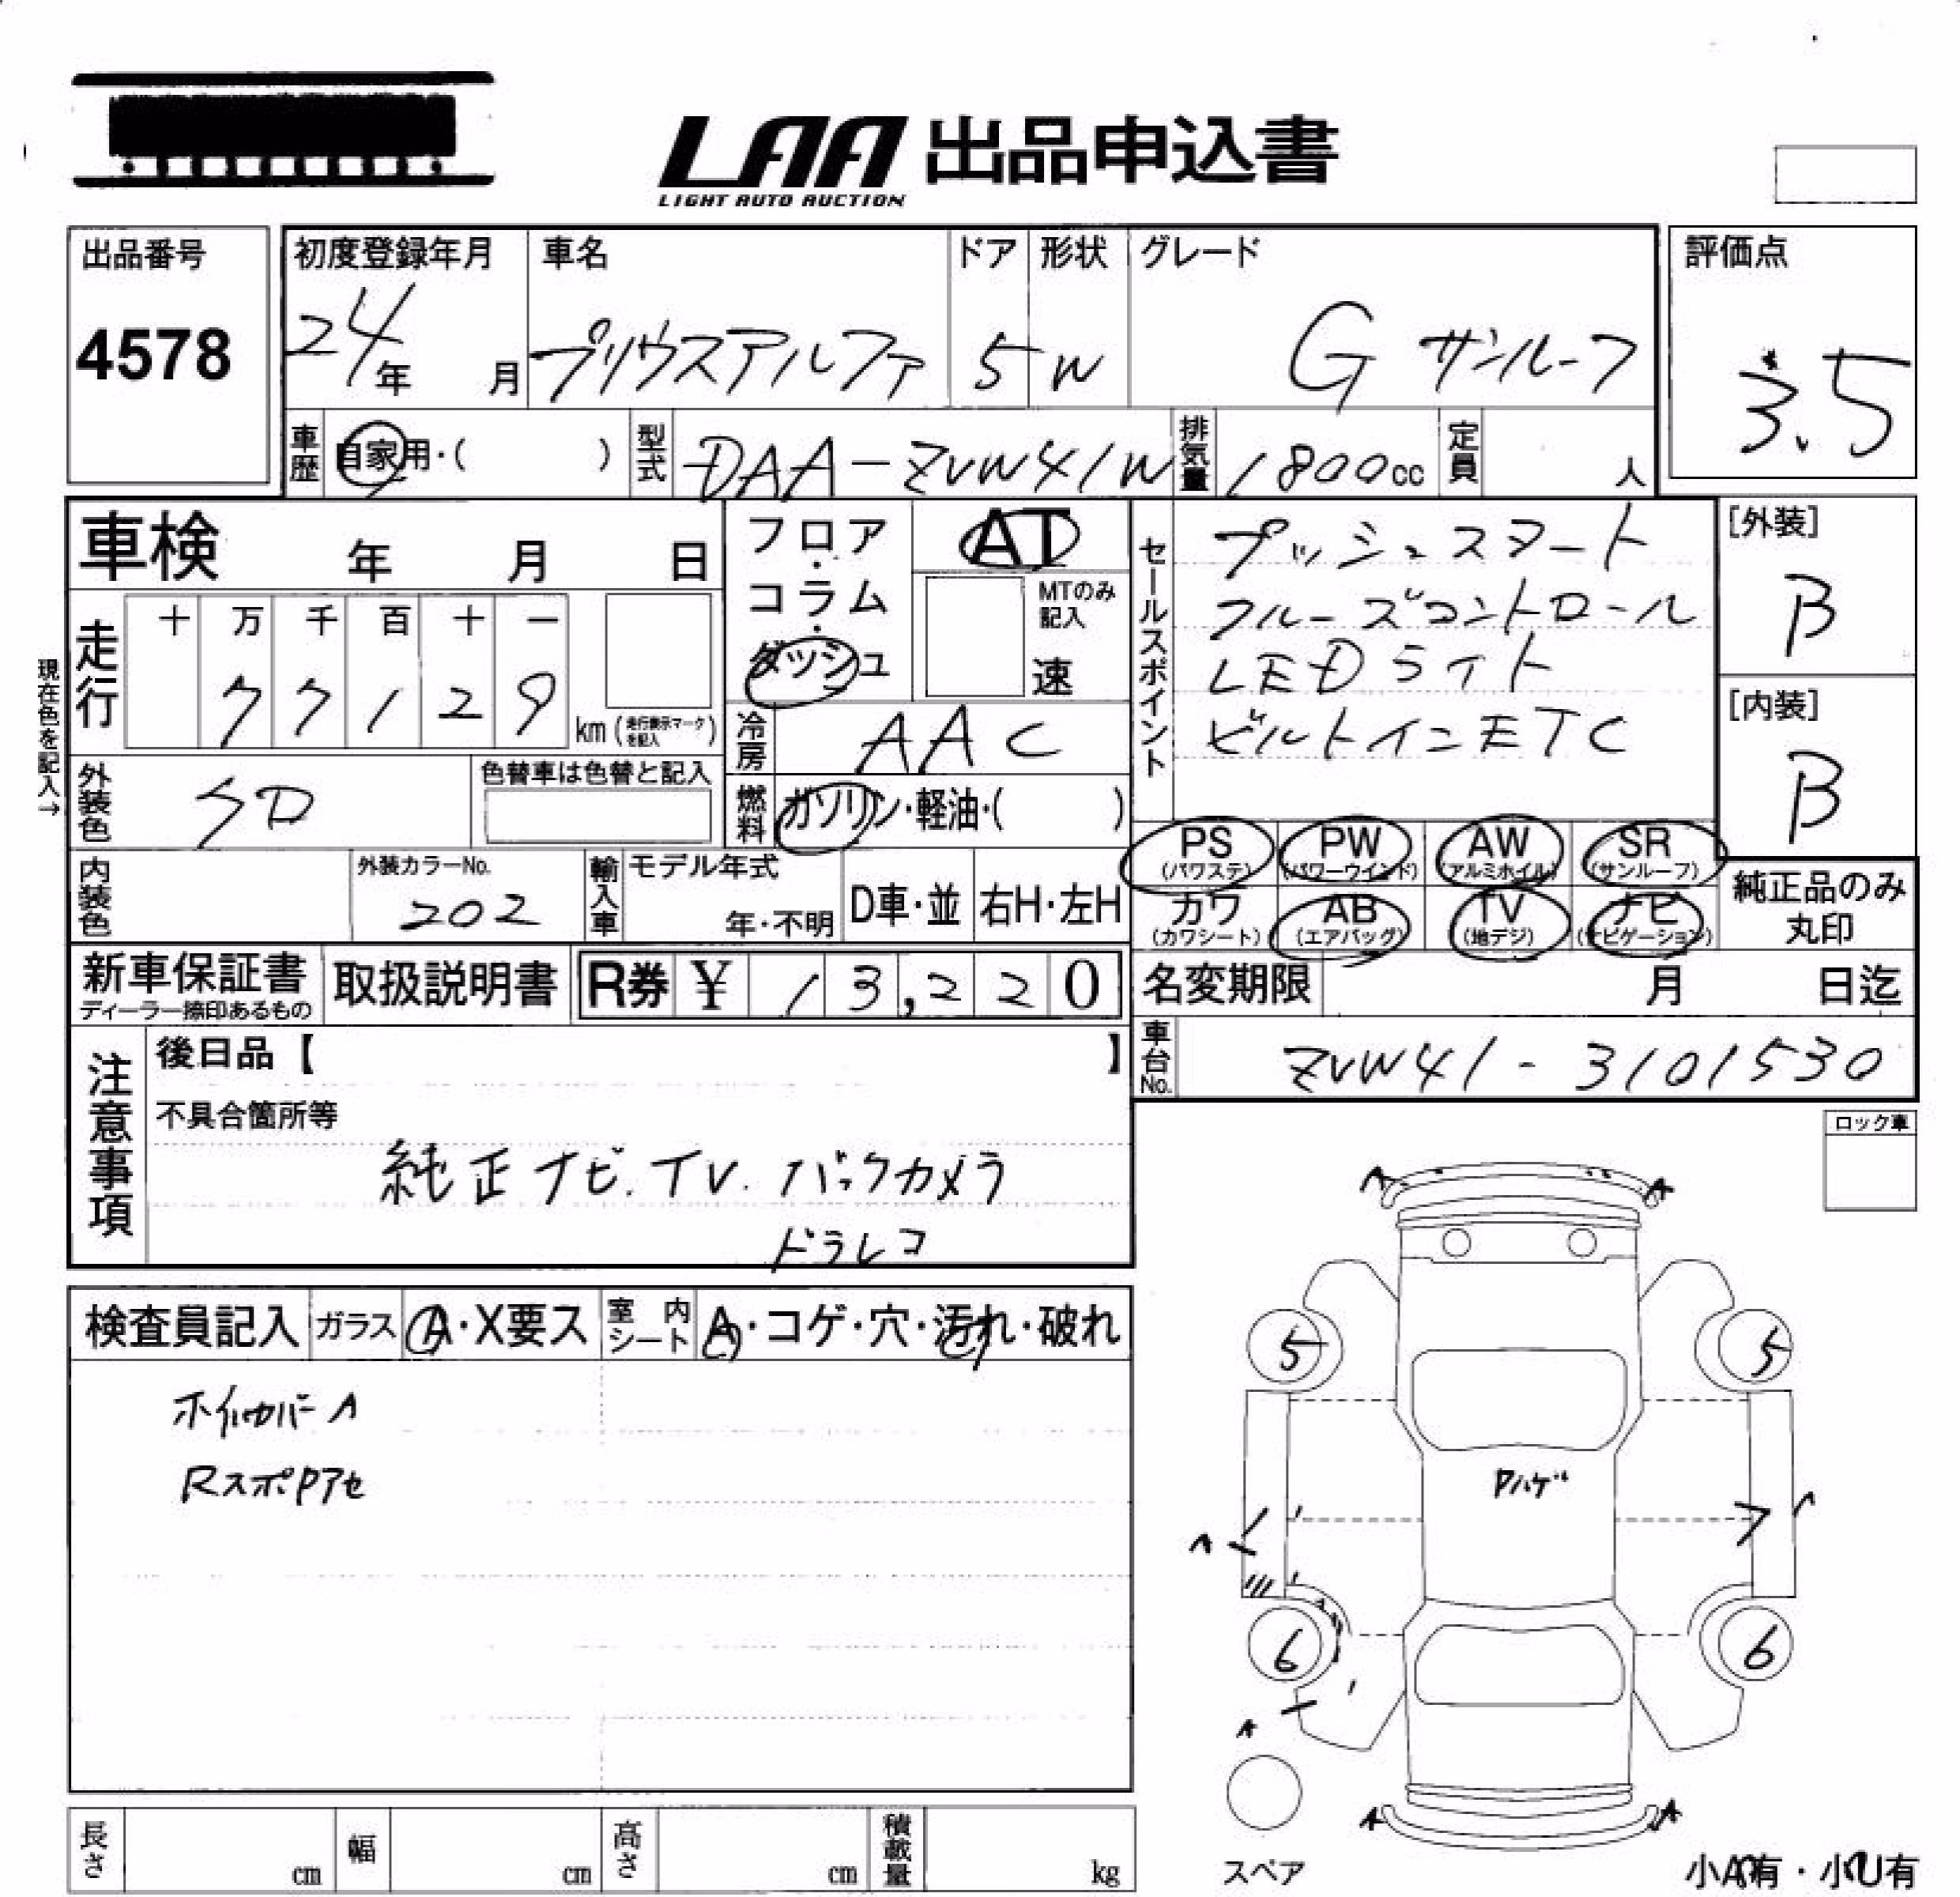 LAA 出品申込書
LIGHT AUTO AUCTION
出品番号
4578
初度登録年月
24年 月
車名
プリウスアルファ
ドア
5
形状
W
グレード
G サンルーフ
評価点
3.5
車歴 自家用・( )
型式 DAA-ZVW41W
排気量 1800cc
定員 人
車検 年 月 日
フロア・コラム・ダッシュ
AT
MTのみ記入
速
セールスポイント
プッシュスタート
クルーズコントロール
LEDライト
ビルトインETC
[外装]
B
[内装]
B
現在色を記入→
走行
十 万 千 百 十 一
7 7 1 2 9
km (走行表示マークを記入)
冷房 AAC
外装色
色替車は色替と記入
燃料 ガソリン・軽油・( )
PS (パワステ)
PW (パワーウインド)
AW (アルミホイル)
SR (サンルーフ)
カワ (カワシート)
AB (エアバッグ)
TV (地デジ)
ナビ (ナビゲーション)
純正品のみ丸印
内装色
外装カラーNo.
202
輸入車
モデル年式
年・不明
D車・並
右H・左H
新車保証書
ディーラー捺印あるもの
取扱説明書
R券 ¥ 13,220
名変期限 月 日迄
車台No. ZVW41-3101530
注意事項
後日品【 】
不具合箇所等
純正ナビ.TV.バックカメラ
ドラレコ
ロック車
検査員記入
ガラス A・X要ス
室内シート A・コゲ・穴・汚れ・破れ
ホイルカバーA
RスポPアセ
A A
5 5
Pハゲ
A
6 6
A
A A
スペア
小A有・小U有
長さ cm
幅 cm
高さ cm
積載量 kg